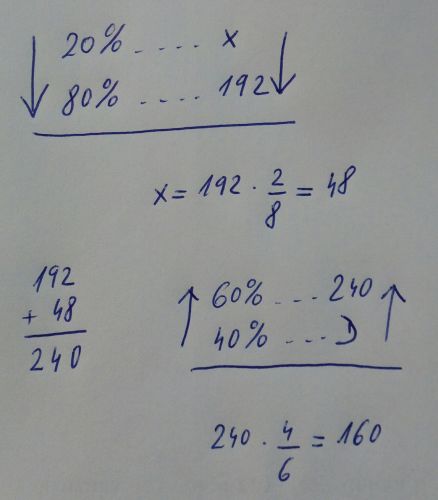 20% .... x
80% .... 192
x = 192 · 2/8 = 48
192
+ 48
240
60% ... 240
40% ... D
240 · 4/6 = 160